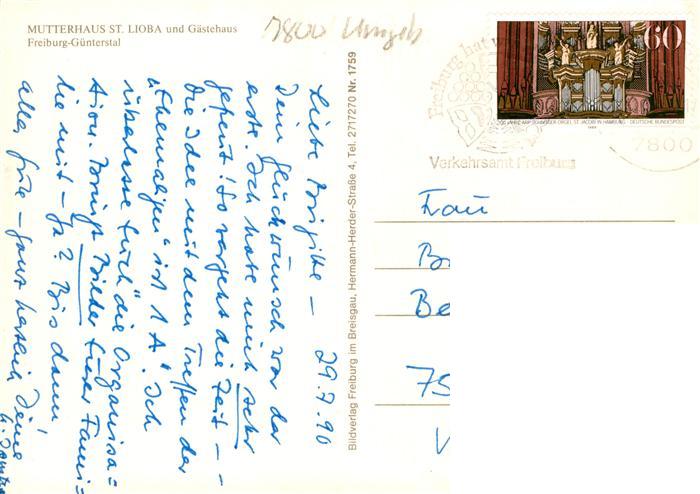 MUTTERHAUS ST. LIOBA und Gästehaus
Freiburg-Günterstal
7800 Umgeb
Liebe Brigitte – 29.7.90
Dein Glückwunsch war der
erste. Ich habe mich sehr
gefreut! So vergeht die Zeit –
Die Idee mit dem Treffen der
"Ehemaligen" ist 1A". Ich
überlasse Euch die Organisa=
tion. Bringt Bilder Eurer Fami=
lie mit – ja? Bis dann,
alles Gute – ganz herzlich Deine
Bildverlag Freiburg im Breisgau, Hermann-Herder-Straße 4, Tel. 2717270 Nr. 1759
Freiburg hat
Verkehrsamt Freiburg
60
300 JAHRE ARP SCHNITGER-ORGEL ST. JACOBI IN HAMBURG · DEUTSCHE BUNDESPOST
1989
7800
Frau
B
Be
75